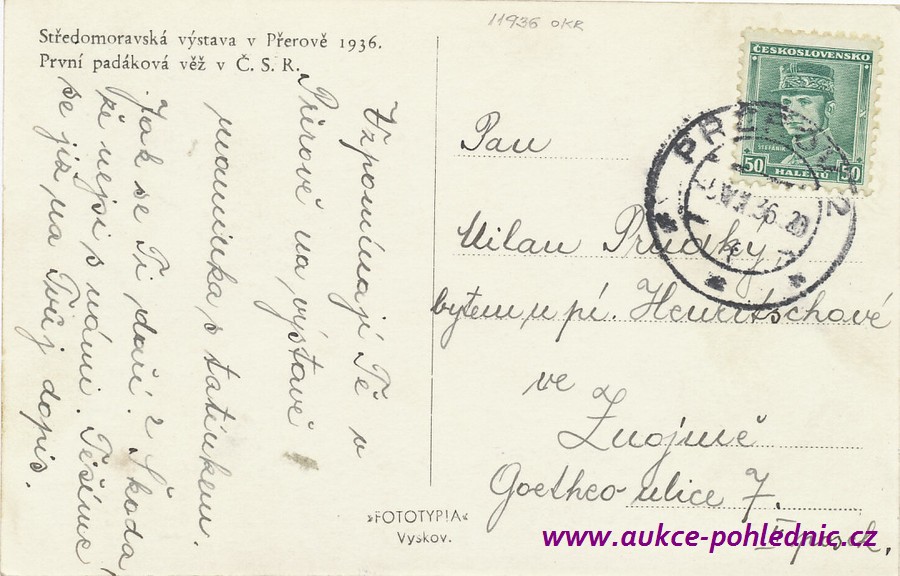 11936 OKR
Středomoravská výstava v Přerově 1936.
První padáková věž v Č. S. R.
Vzpomínají Tě v
Přerově na výstavě
maminka s tatínkem.
Jak se Ti daří? Škoda,
že nejsi s námi. Těšíme
se již na Tvůj dopis.
»FOTOTYPIA«
Vyškov.
ČESKOSLOVENSKO
ŠTEFÁNIK
50 HALÉŘŮ 50
PŘEROV 2
36.20
Pan
Milan Prudký
bytem u pí. Henritschové
ve
Znojmě
Goetheo ulice 7.
II posch.
www.aukce-pohlednic.cz